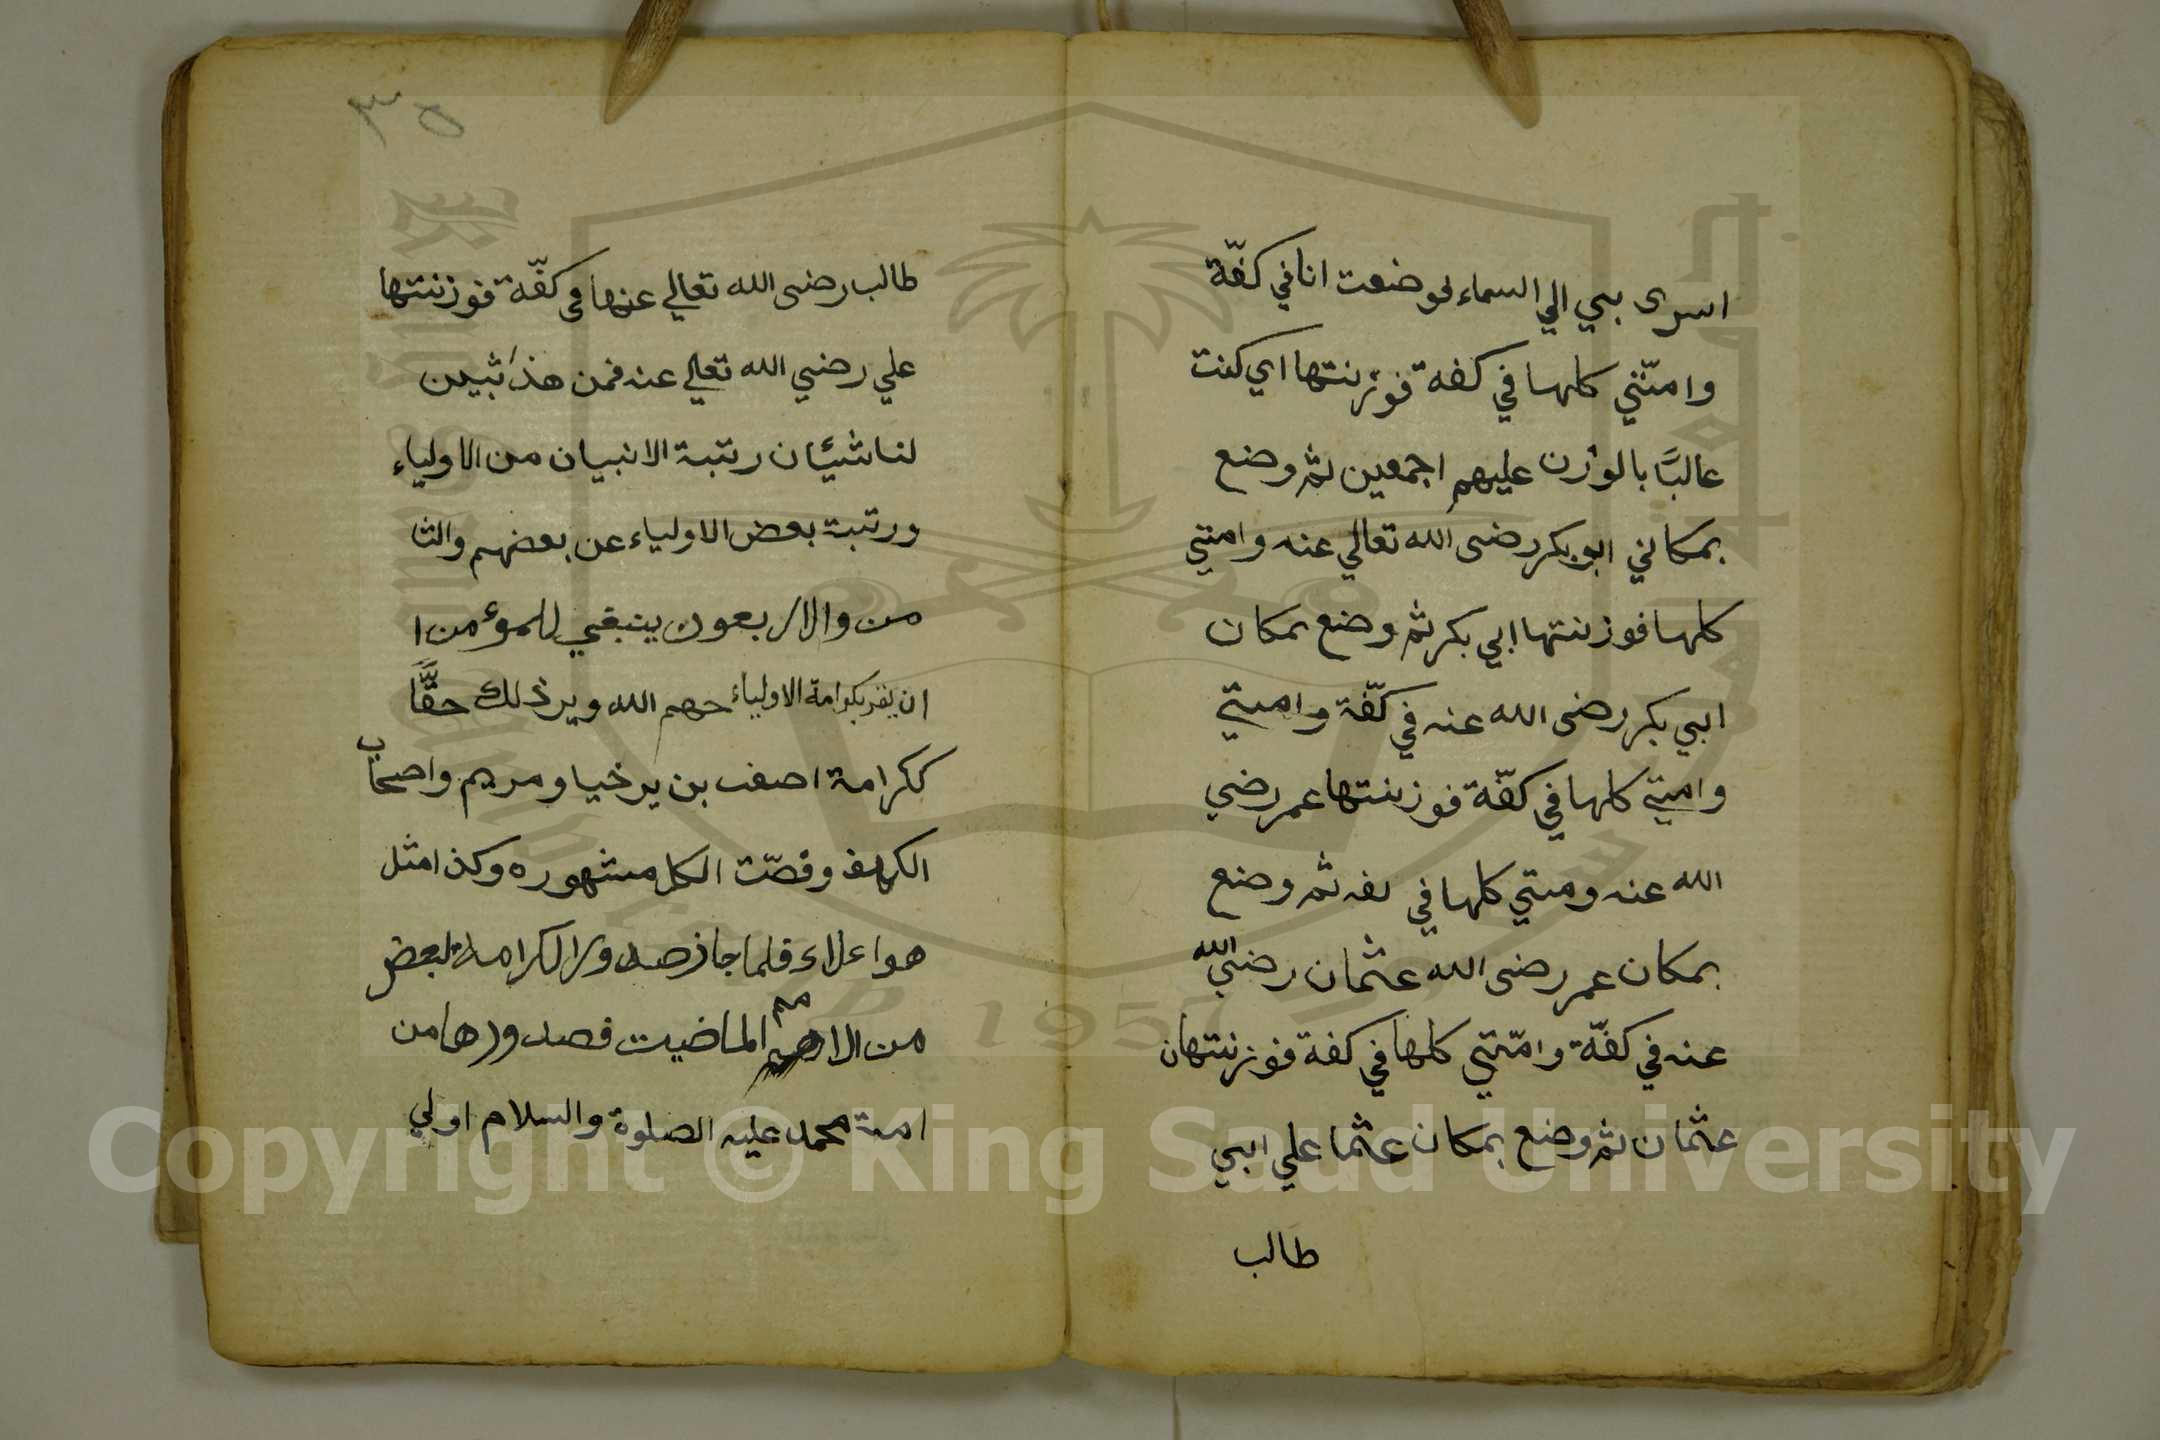 اسرى بي الي السماء لوضعت انا في كفّة
وامتّني كلها في كفة فوزنتها اي كنت
عالبًا بالوزن عليهم اجمعين ثم وضع
بمكاني ابوبكر رضى الله تعالي عنه وامتي
كلها فوزنتها ابي بكر ثم وضع بمكان
ابي بكر رضى الله عنه في كفّة وامتي
وامتي كلها في كفّة فوزنتها عمر رضي
الله عنه ومتي كلها في كفه ثم وضع
بمكان عمر رضى الله عثمان رضي الله
عنه في كفّة وامّتي كلها في كفة فوزنتهان
عثمان ثم وضع بمكان عثما علي ابي
طالب
٣٥
طالب رضى الله تعالي عنها في كفّة فوزنتها
علي رضي الله تعالي عنه فمن هذا ثبين
لنا شيئان رتبة الانبيان من الاولياء
ورتبة بعض الاولياء عن بعضهم والثا
من والاربعون ينبغي للمؤمن ا
ان يقر بكرامة الاولياء حهم الله ويرذلك حقًّا
ككرامة اصف بن يرخيا ومريم واصحاب
الكهف وقصّت الكل مشهوره وكذا مثل
هواعلاء فلما جاز صدور الكرامة لبعض
من الامم الماضيت فصدورها من
امة محمد عليه الصلوة والسلام اولي
Copyright © King Saud University
1957